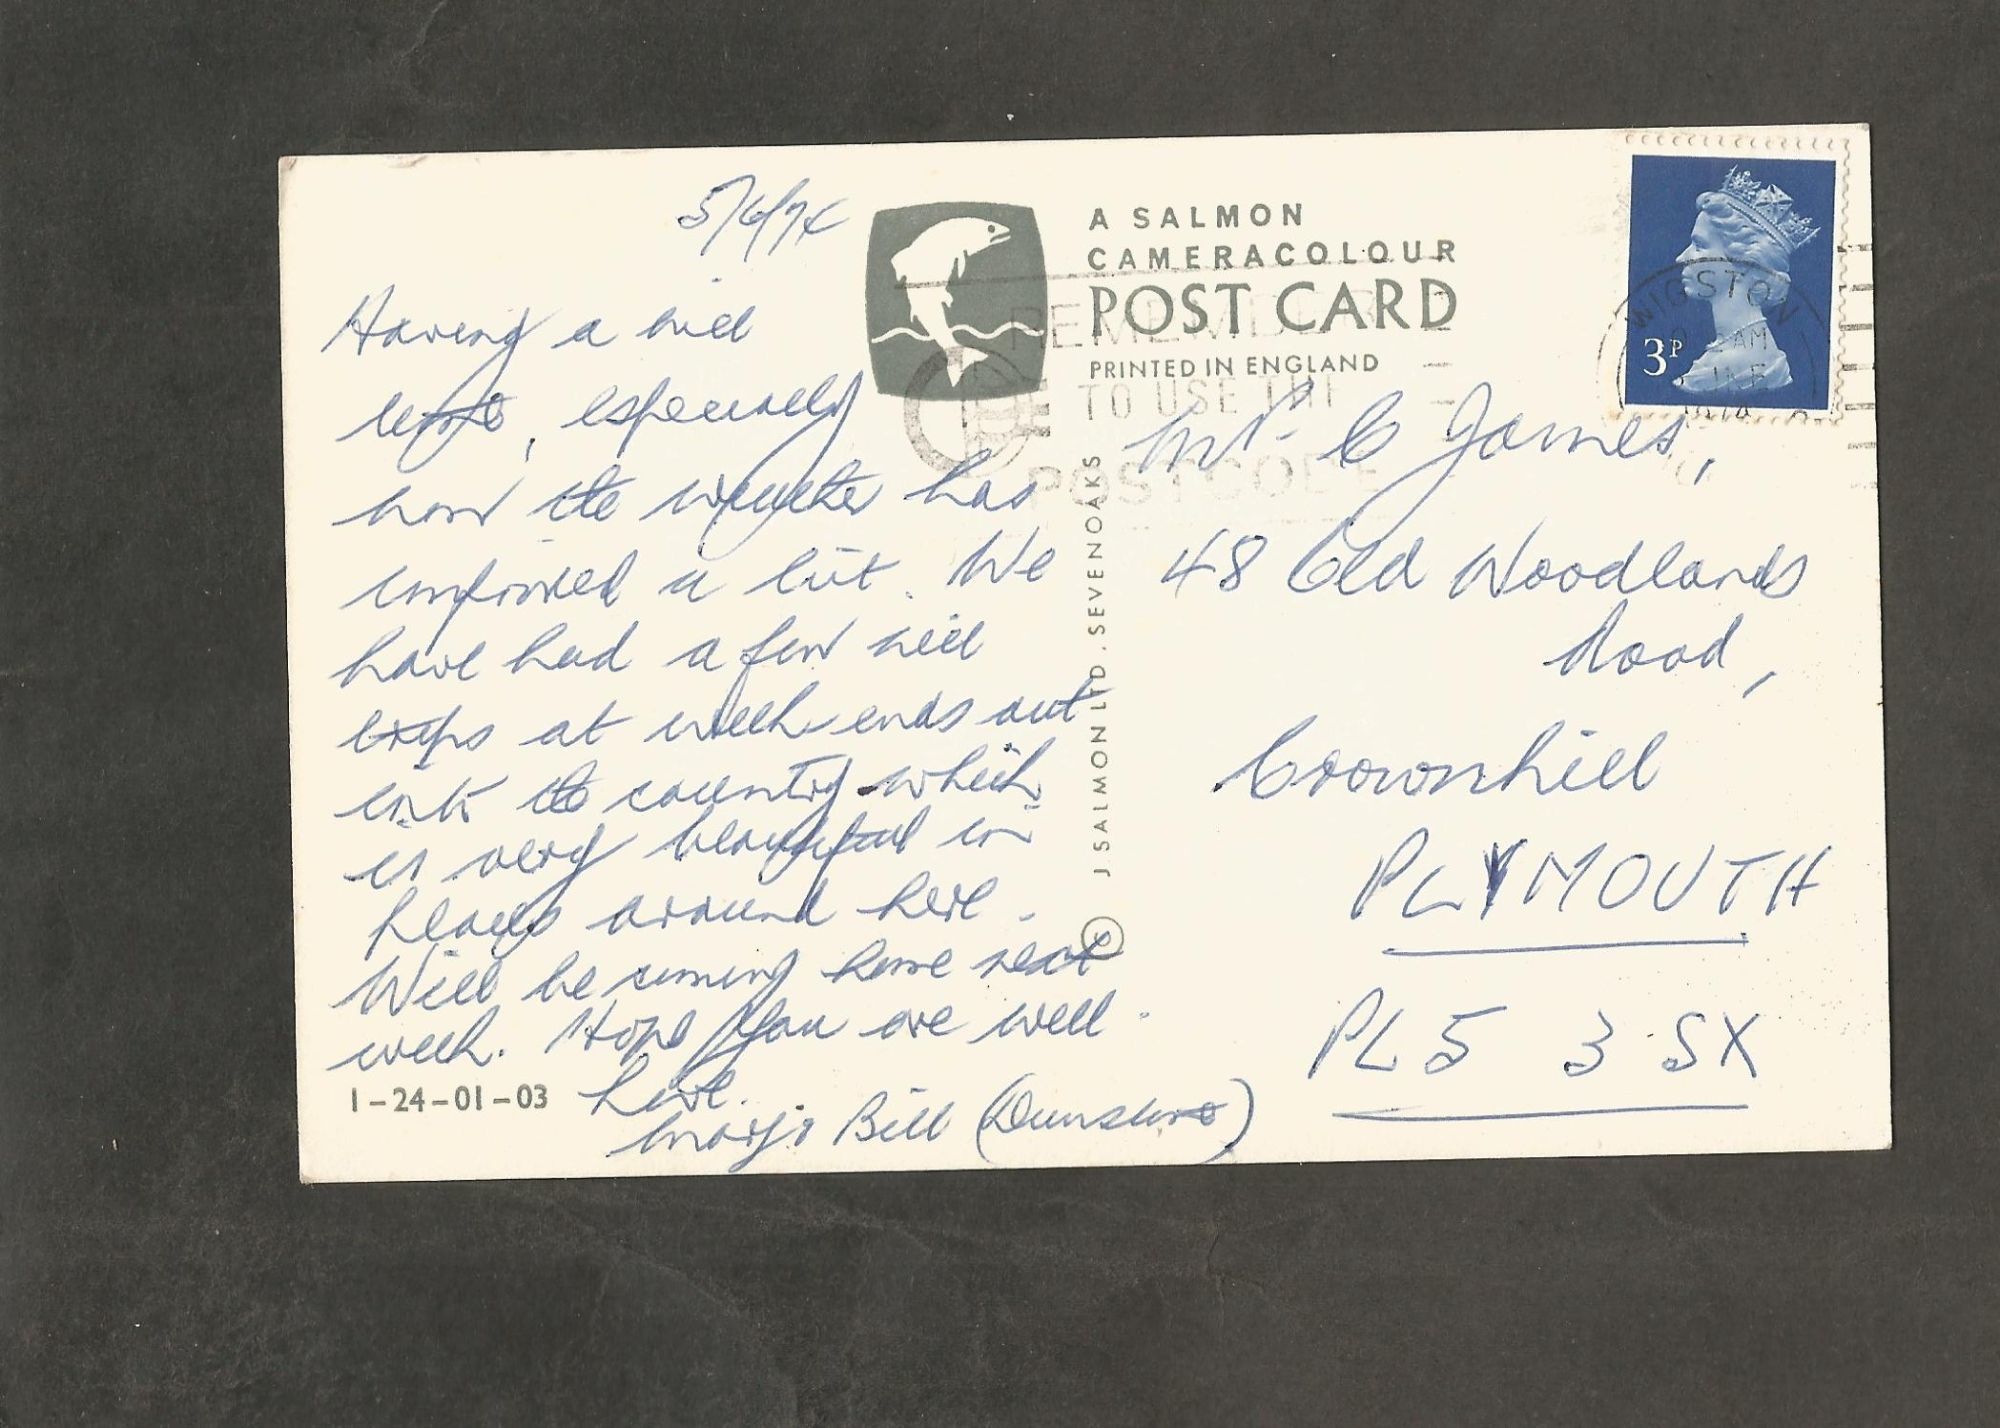 5/6/74
Having a nice
rest, especially
now the weather has
improved a bit. We
have had a few nice
trips at week-ends out
into the country which
is very beautiful in
places around here.
Will be coming home next
week. Hope you are well
here.
Marj & Bill (Dunstone)
1-24-01-03
A SALMON
CAMERACOLOUR
POST CARD
PRINTED IN ENGLAND
REMEMBER
TO USE THE
POSTCODE
J SALMON LTD, SEVENOAKS ©
3P
WIGSTON
AM
JNE
1974
Mr C James,
48 Old Woodlands
Road,
Crownhill
PLYMOUTH
PL5 3SX